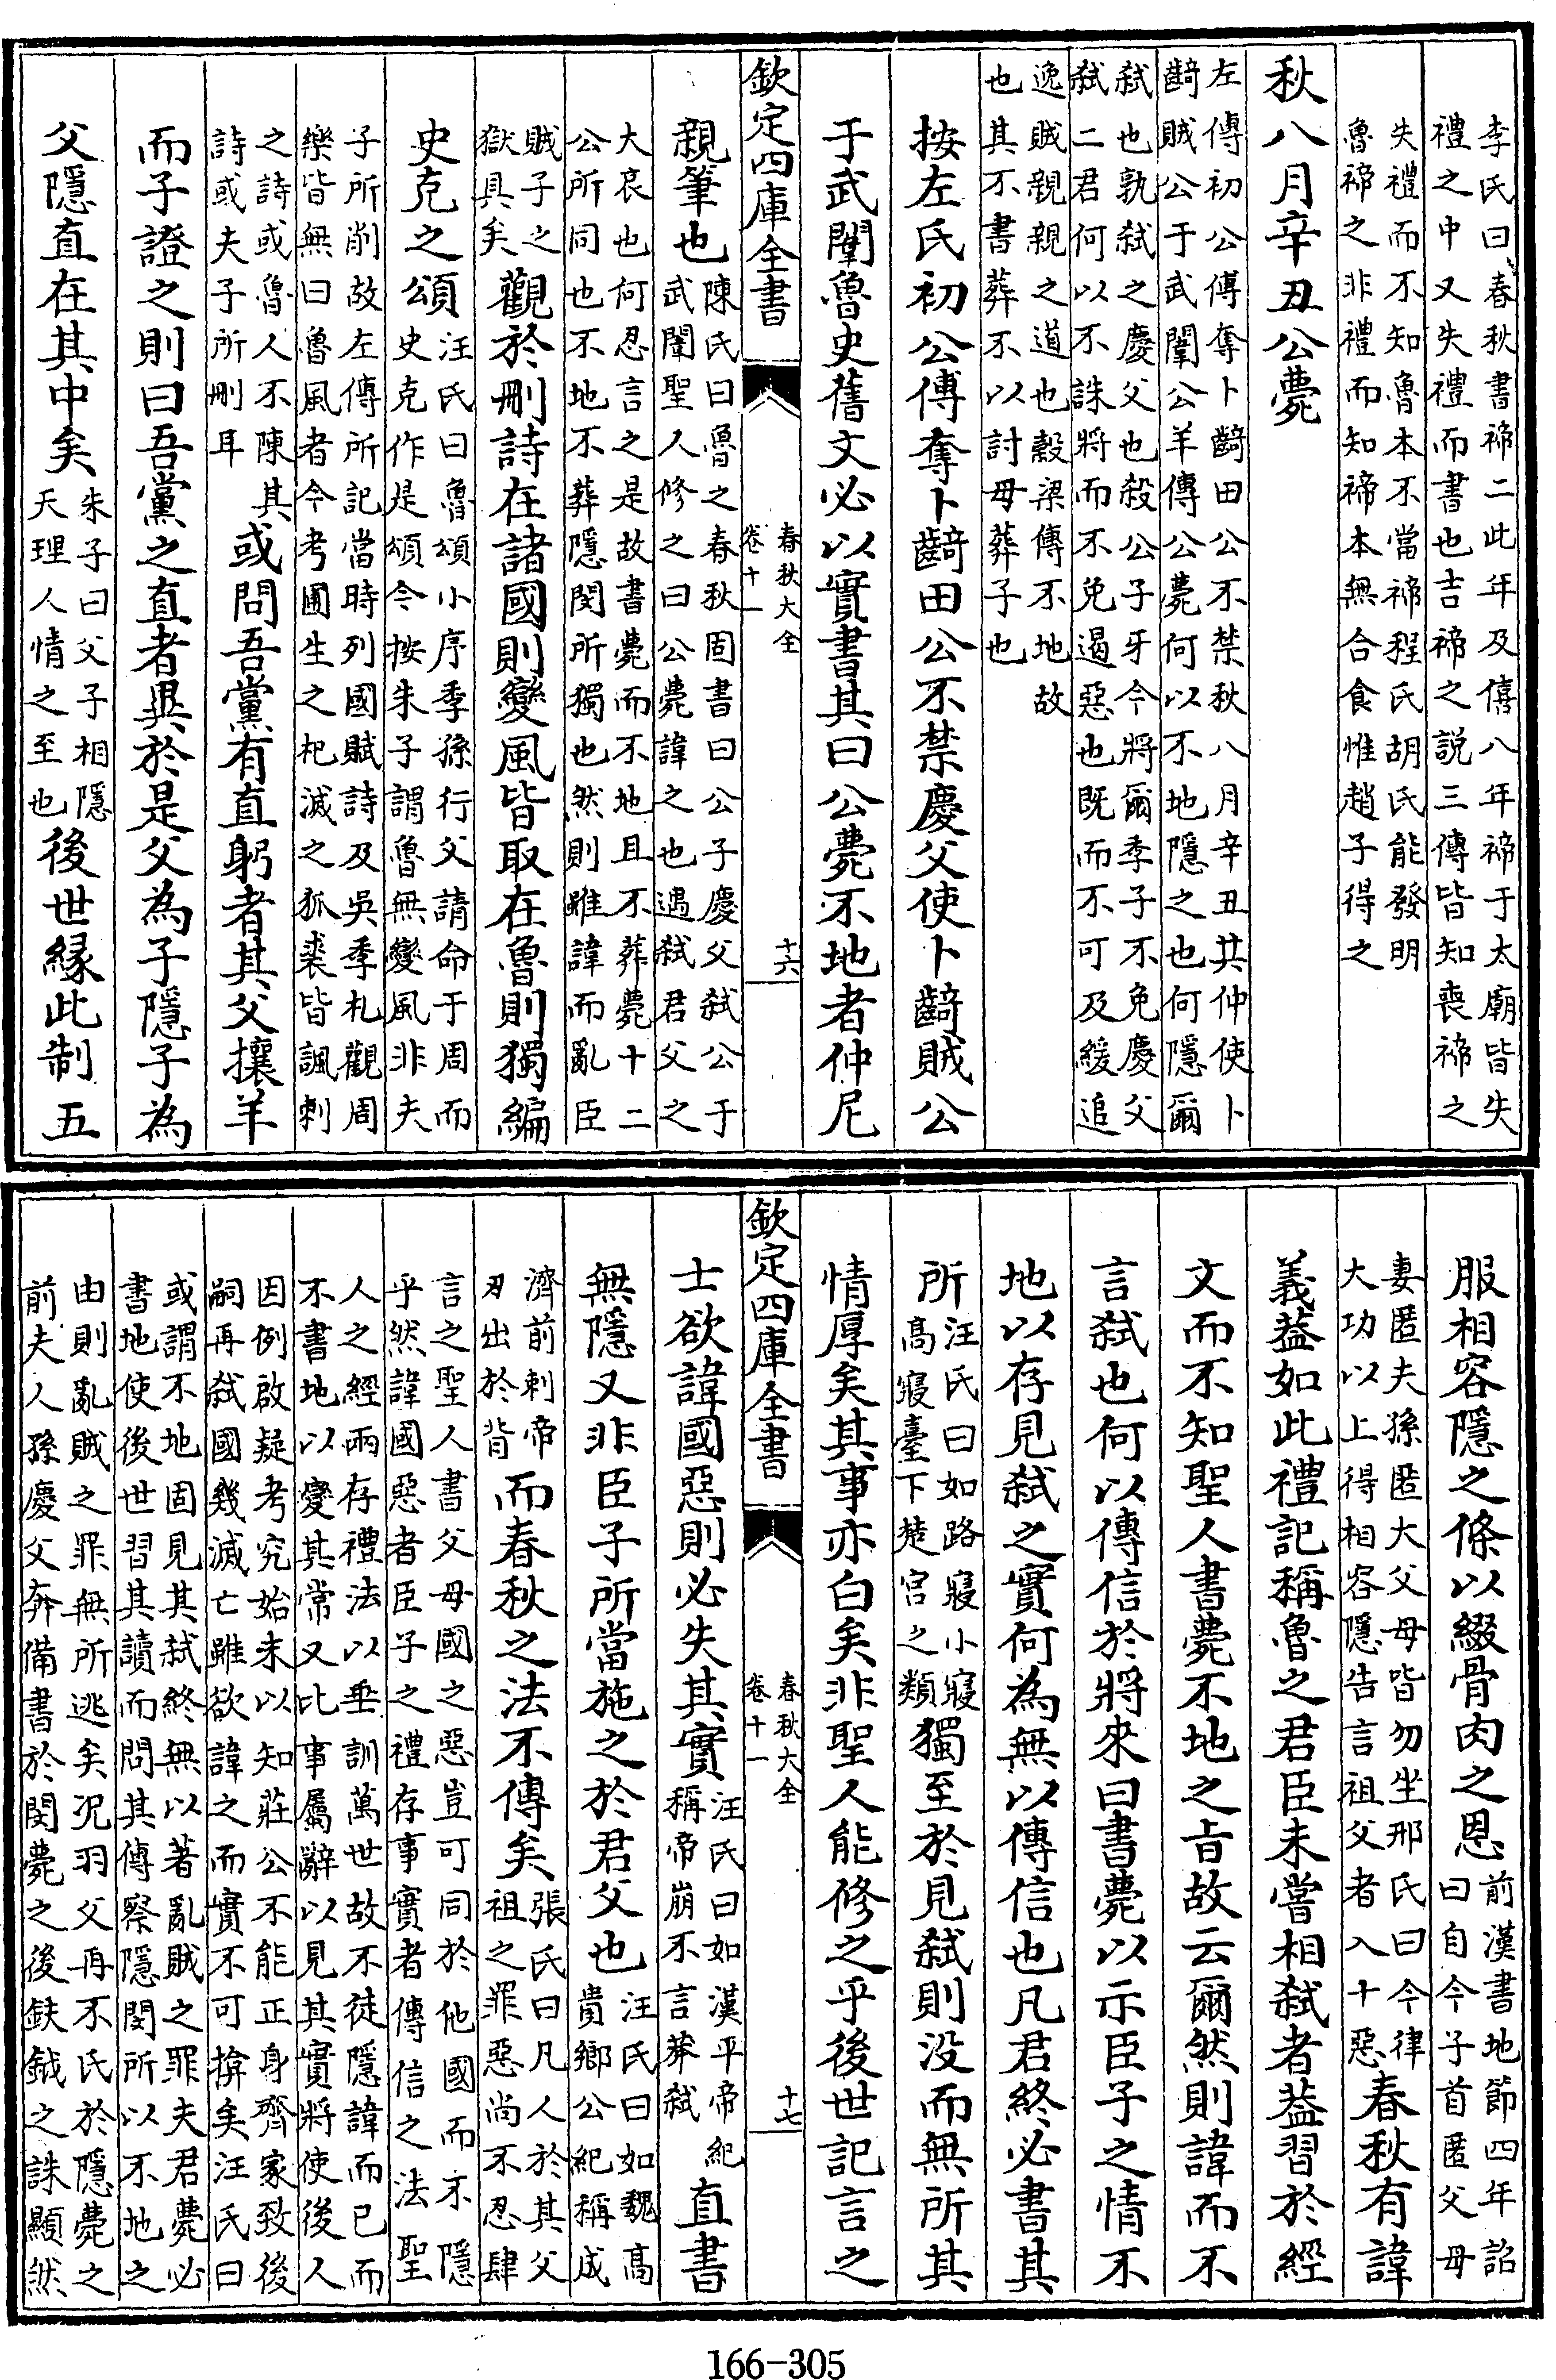 李氏曰春秋書禘二此年及僖八年禘于太廟皆失
禮之中又失禮而書也吉禘之説三傳皆知喪禘之
失禮而不知魯本不當禘程氏胡氏能發明
魯禘之非禮而知禘本無合食惟趙子得之
秋八月辛丑公薨
左傳初公傅奪卜齮田公不禁秋八月辛丑共仲使卜
齮賊公于武闈公羊傳公薨何以不地隱之也何隱爾
弑也孰弑之慶父也殺公子牙今將爾季子不免慶父
弑二君何以不誅將而不免遏惡也既而不可及緩追
逸賊親親之道也穀梁傳不地故
也其不書葬不以討母葬子也
按左氏初公傅奪卜齮田公不禁慶父使卜齮賊公
于武闈魯史舊文必以實書其曰公薨不地者仲尼
欽定四庫全書 春秋大全 卷十一 十六
親筆也陳氏曰魯之春秋固書曰公子慶父弑公于武闈聖人修之曰公薨諱之也遇弑君父之
大哀也何忍言之是故書薨而不地且不葬薨十二
公所同也不地不葬隱閔所獨也然則雖諱而亂臣
賊子之獄具矣觀於刪詩在諸國則變風皆取在魯則獨編
史克之頌汪氏曰魯頌小序季孫行父請命于周而史克作是頌今按朱子謂魯無變風非夫
子所削故左傳所記當時列國賦詩及吳季札觀周
樂皆無曰魯風者今考圃生之杞滅之狐裘皆諷刺
之詩或魯人不陳其詩或夫子所刪耳或問吾黨有直躬者其父攘羊
而子證之則曰吾黨之直者異於是父為子隱子為
父隱直在其中矣朱子曰父子相隱天理人情之至也後世縁此制五
服相容隱之條以綴骨肉之恩前漢書地節四年詔曰自今子首匿父母
妻匿夫孫匿大父母皆勿坐邢氏曰今律大功以上得相容隱告言祖父者入十惡春秋有諱
義葢如此禮記稱魯之君臣未嘗相弑者葢習於經
文而不知聖人書薨不地之㫖故云爾然則諱而不
言弑也何以傳信於將來曰書薨以示臣子之情不
地以存見弑之實何為無以傳信也凡君終必書其
所汪氏曰如路寢小寢高寢臺下楚宮之類獨至於見弑則没而無所其
情厚矣其事亦白矣非聖人能修之乎後世記言之
欽定四庫全書 春秋大全 卷十一 十七
士欲諱國惡則必失其實汪氏曰如漢平帝紀稱帝崩不言莽弑直書
無隱又非臣子所當施之於君父也汪氏曰如魏高貴鄉公紀稱成
濟前刺帝刃出於背而春秋之法不傳矣張氏曰凡人於其父祖之罪惡尚不忍肆
言之聖人書父母國之惡豈可同於他國而不隱
乎然諱國惡者臣子之禮存事實者傳信之法聖
人之經兩存禮法以垂訓萬世故不徒隱諱而已而
不書地以變其常又比事屬辭以見其實將使後人
因例啟疑考究始末以知莊公不能正身齊家致後
嗣再弑國幾滅亡雖欲諱之而實不可揜矣汪氏曰
或謂不地固見其弑終無以著亂賊之罪夫君薨必
書地使後世習其讀而問其傳察隱閔所以不地之
由則亂賊之罪無所逃矣況羽父再不氏於隱薨之
前夫人孫慶父奔備書於閔薨之後鈇鉞之誅顯然
166-305